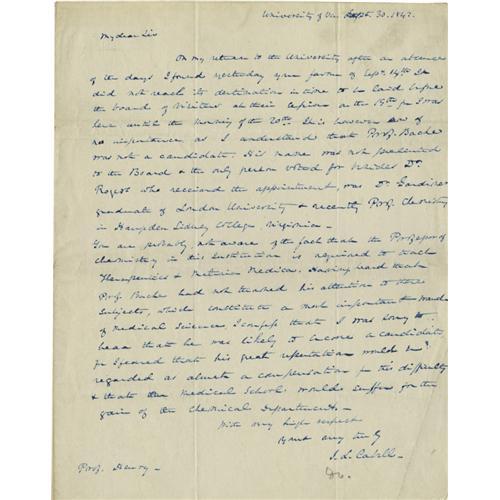 University of Va. Sept. 30. 1842.
My dear Sir
On my return to the University after an absence
of ten days I found yesterday your favour of Sept. 14th. It
did not reach its destination in time to be laid before
the board of Visitors at their session on the 19th for I was
here until the morning of the 20th. This however was of
no importance, as I understand that Prof. Bache
was not a candidate. His name was not presented
to the Board & the only person voted for besides Dr.
Rogers who received the appointment, was Dr. Gardiner
graduate of London University & recently Prof. Chemistry
in Hampden Sidney College, Virginia.
You are probably not aware of the fact that the Professor of
Chemistry in this Institution is required to teach
Therapeutics & Materia Medica. Having heard that
Prof. Bache had not turned his attention to these
subjects, which constitute a most important branch
of Medical Science, I confess that I was sorry to
hear that he was likely to become a candidate
for I feared that his great reputation would be
regarded as almost a compensation for this difficulty
& that the Medical School would suffer for the
gain of the Chemical Department.
With very high respect
Yours very truly
J. L. Cabell
Prof. Henry